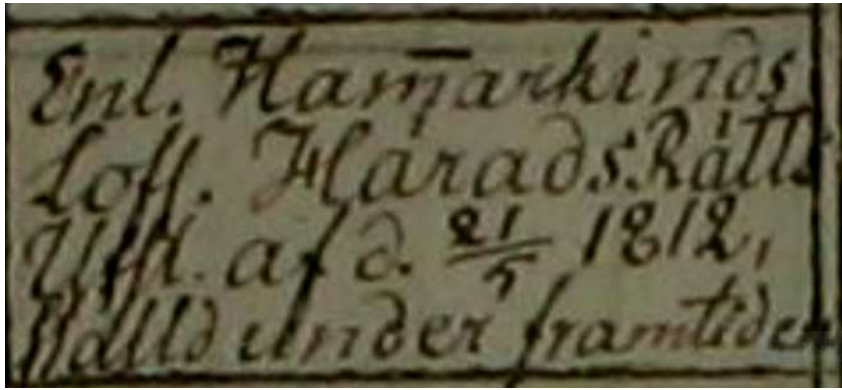 Enl. Ham̄arkinds
Lofl. HäradsRätts
Utsl. af d. 21/5 1812,
ställd under framtiden